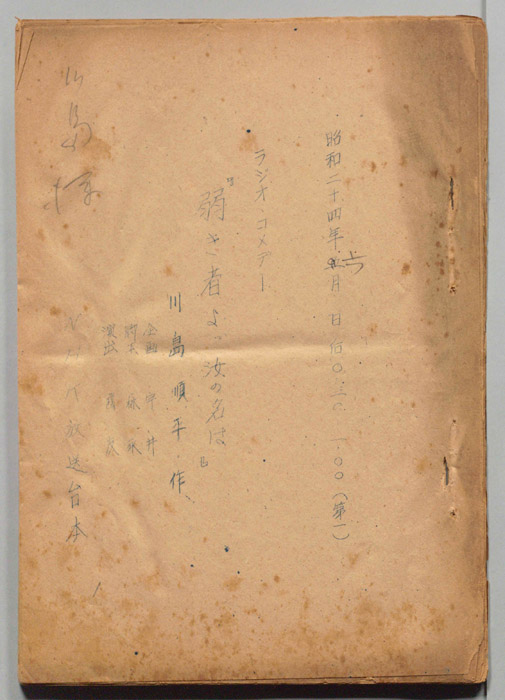 昭和二十四年 六月 日 后〇.三〇 一.〇〇(第一)
ラジオ・コメデー
『弱き者よ、汝の名は』
川島順平 作
企画
演出
放送台本
川島